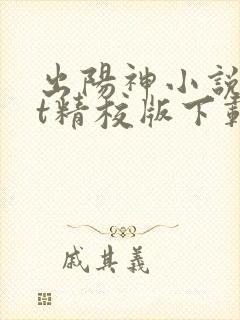 出陽神小說
t精校版下載
戚其義